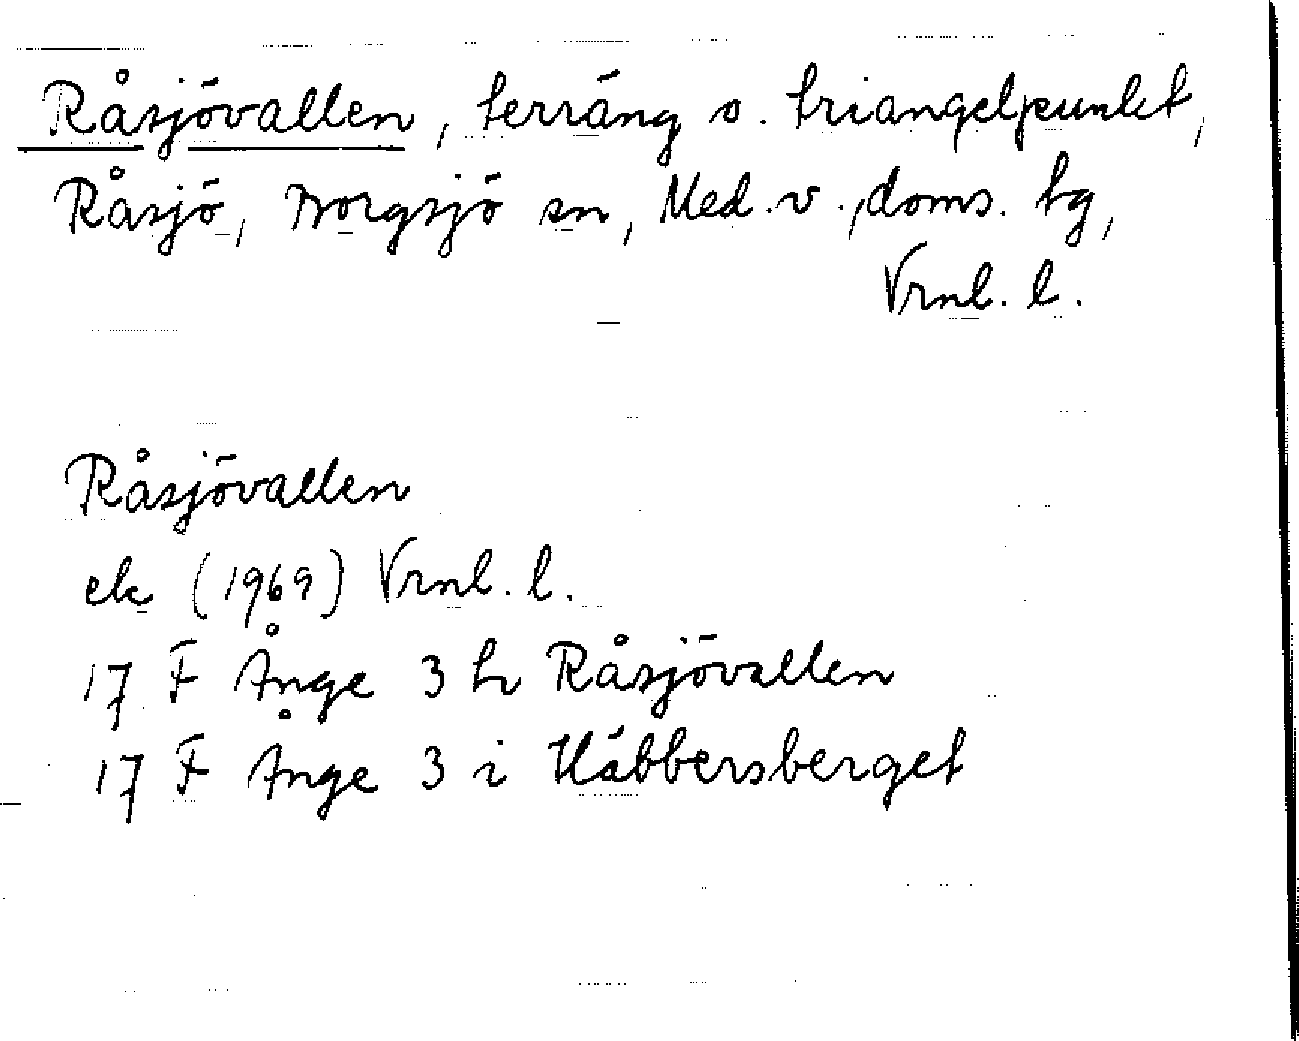 Råsjövallen, terräng o. triangelpunkt,
Råsjö, Borgsjö sn, Med. v., doms. tg,
Vrnl. l.
Råsjövallen
ek (1969) Vrnl. l.
17 F Ånge 3 h Råsjövallen
17 F Ånge 3 i Häbbersberget